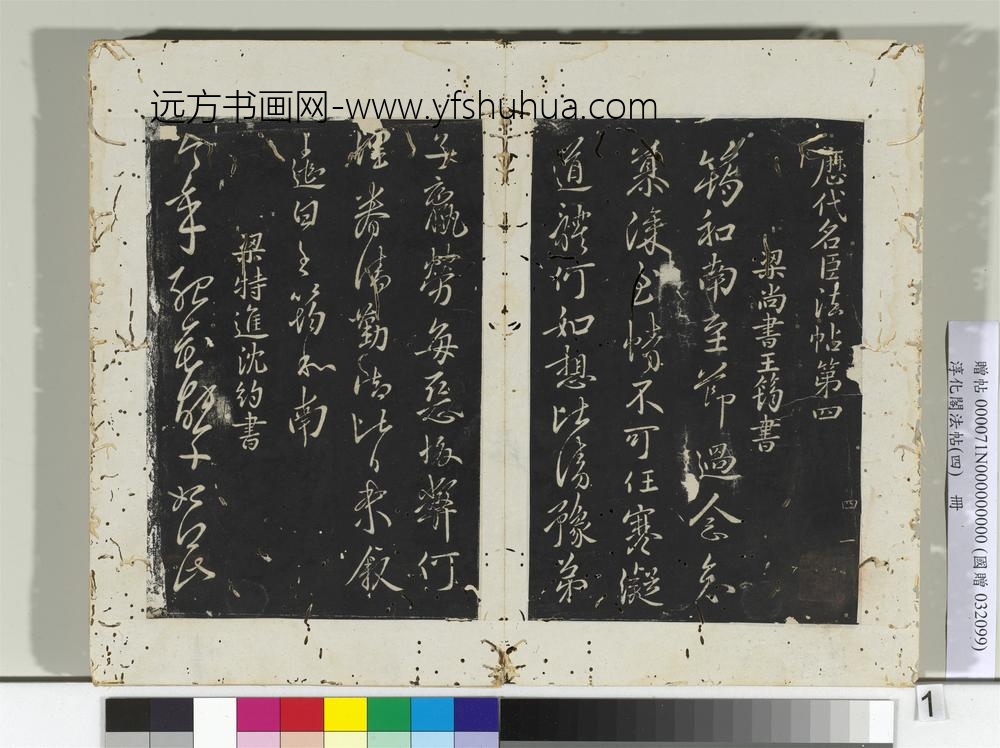 远方书画网-www.yfshuhua.com
歷代名臣法帖第四
梁尚書王筠書
筠和南至節過念
深至情不可任寒凝
道體何如想比清豫弟
子羸勞每惡弊何
眷備勤比日未敘
白王筠和南
梁特進沈約書
今年
四
一
贈帖 000071N000000000 (國贈 032099)
淳化閣法帖(四) 冊
1